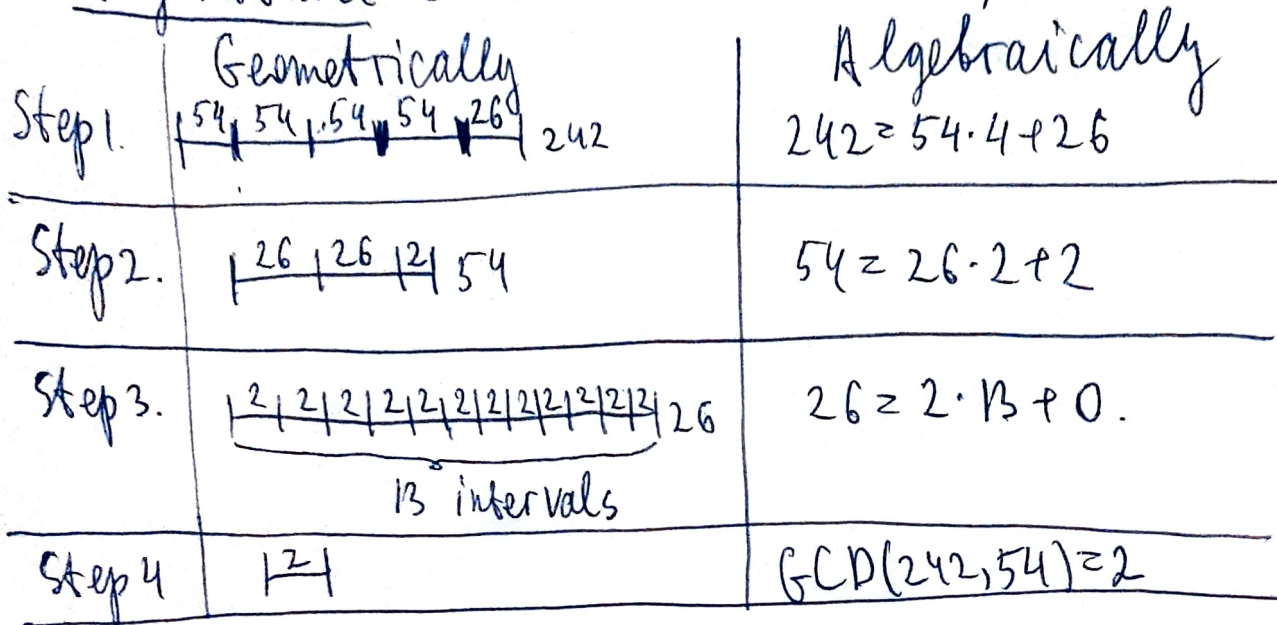 Geometrically Algebraically
Step 1. 54 54 54 54 26 242 242 = 54·4+26
Step 2. 26 26 2 54 54 = 26·2+2
Step 3. 2 2 2 2 2 2 2 2 2 2 2 2 26 26 = 2·13+0.
13 intervals
Step 4 2 GCD(242,54)=2